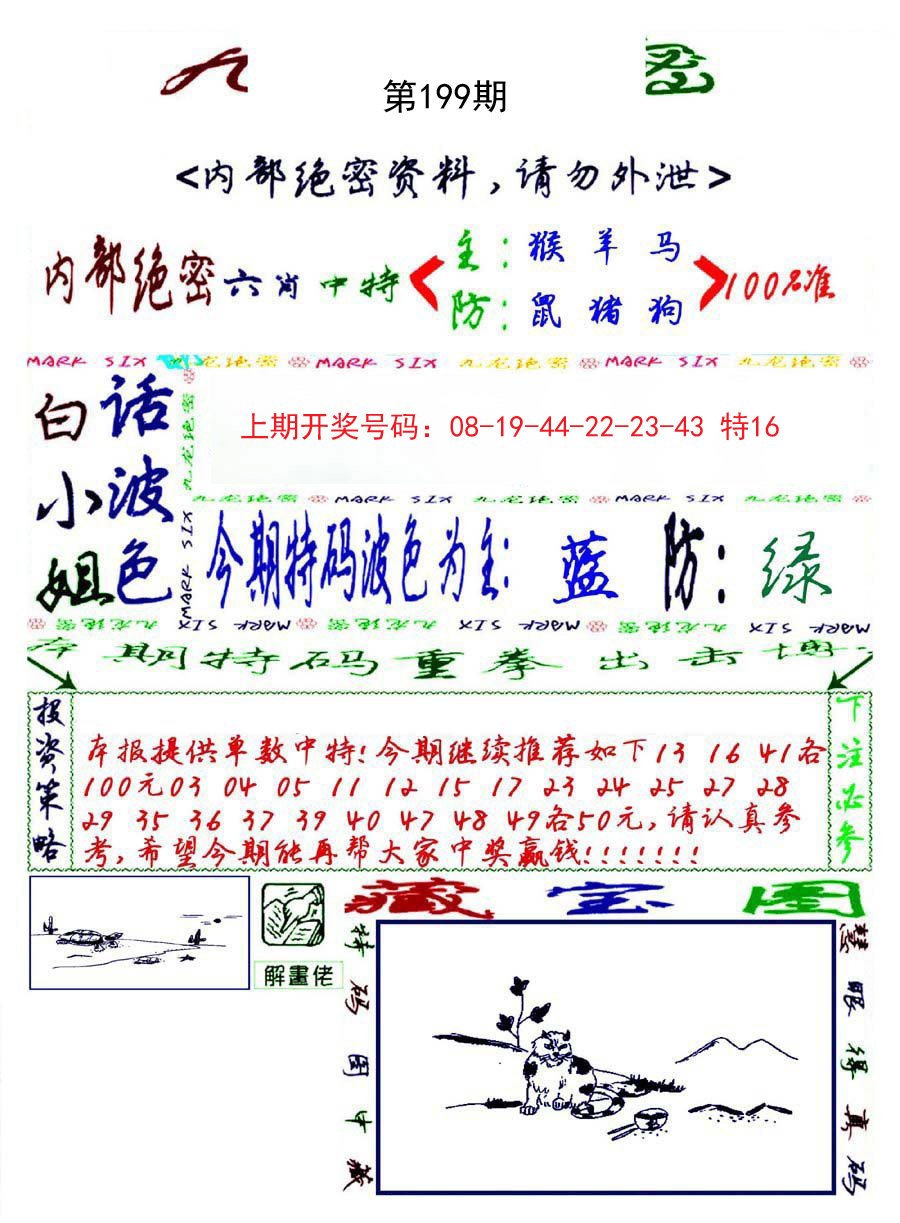 九 密
第199期
<内部绝密资料，请勿外泄>
内部绝密六肖中特
主：猴羊马
防：鼠猪狗
100%准
MARK SIX 九龙绝密 MARK SIX 九龙绝密 MARK SIX 九龙绝密
白小姐
话波色
九龙绝密
MARK SIX
上期开奖号码：08-19-44-22-23-43 特16
九龙绝密 MARK SIX 九龙绝密 MARK SIX 九龙绝密
今期特码波色为主：蓝 防：绿
MARK SIX 九龙绝密 MARK SIX 九龙绝密 MARK SIX 九龙绝密
期特码重拳出击
投资策略
本报提供单数中特!今期继续推荐如下13 16 41各
100元03 04 05 11 12 15 17 23 24 25 27 28
29 35 36 37 39 40 47 48 49各50元,请认真参
考,希望今期能再帮大家中奖赢钱!!!!!!!
下注必参
解畫佬
藏宝图
特码图中藏
慧眼得真码